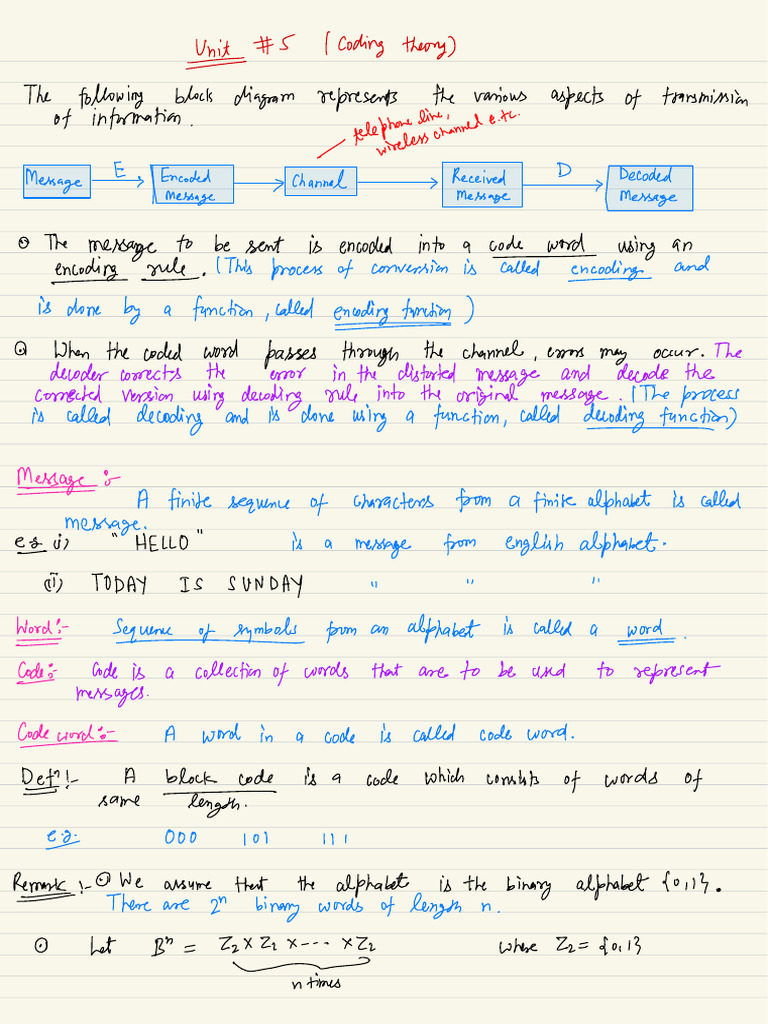 Unit #5 (Coding theory)
The following block diagram represents the various aspects of transmission
of information.
telephone line,
wireless channel e.t.c.
Message E Encoded Message Channel Received Message D Decoded Message
⊙ The message to be sent is encoded into a code word using an
encoding rule. (This process of conversion is called encoding and
is done by a function, called encoding function)
⊙ When the coded word passes through the channel, errors may occur. The
decoder corrects the error in the distorted message and decode the
corrected version using decoding rule into the original message. (The process
is called decoding and is done using a function, called decoding function)
Message :-
A finite sequence of characters from a finite alphabet is called
message.
e.g. (i) "HELLO" is a message from english alphabet.
(ii) TODAY IS SUNDAY " " "
Word:- Sequence of symbols from an alphabet is called a word.
Code:- Code is a collection of words that are to be used to represent
messages.
Code word:- A word in a code is called code word.
Defⁿ:- A block code is a code which consists of words of
same length.
e.g. 000 101 111
Remark:- ⊙ We assume that the alphabet is the binary alphabet {0,1}.
There are 2ⁿ binary words of length n.
⊙ Let Bⁿ = Z₂ × Z₂ × --- × Z₂ where Z₂ = {0,1}
n times